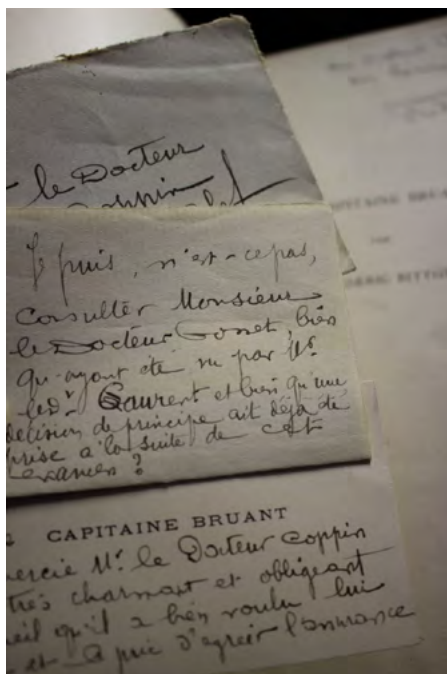 le Docteur
Coppin
Je puis, n'est-ce pas,
Consulter Monsieur
le Docteur Gosset, bien
qu'ayant été vu par Mr
le Dr Laurent et bien qu'une
décision de principe ait déjà été
prise à la suite de cet
examen ?
CAPITAINE BRUANT
CAPITAINE BRUANT
remercie Mr. le Docteur Coppin
très charmant et obligeant
qu'il a bien voulu lui
et le prie d'agréer l'assurance